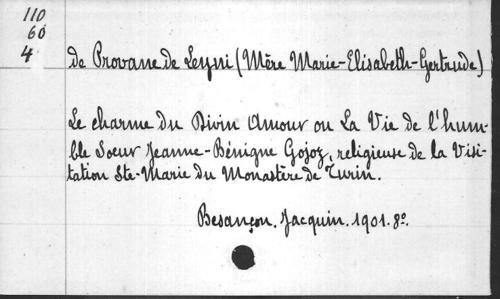 110
60
4
de Provane de Leyni (Mère Marie-Elisabeth-Gertrude)
Le charme du Divin Amour ou La Vie de l'hum-
ble Soeur Jeanne-Bénigne Gojoz, religieuse de la Visi-
tation Ste-Marie du Monastère de Turin.
Besançon. Jacquin. 1901. 8º.